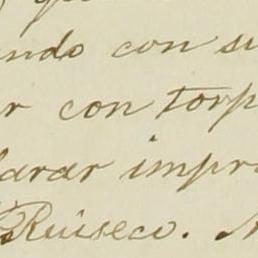 ndo con su
r con torp
larar impr
Ruiseco.